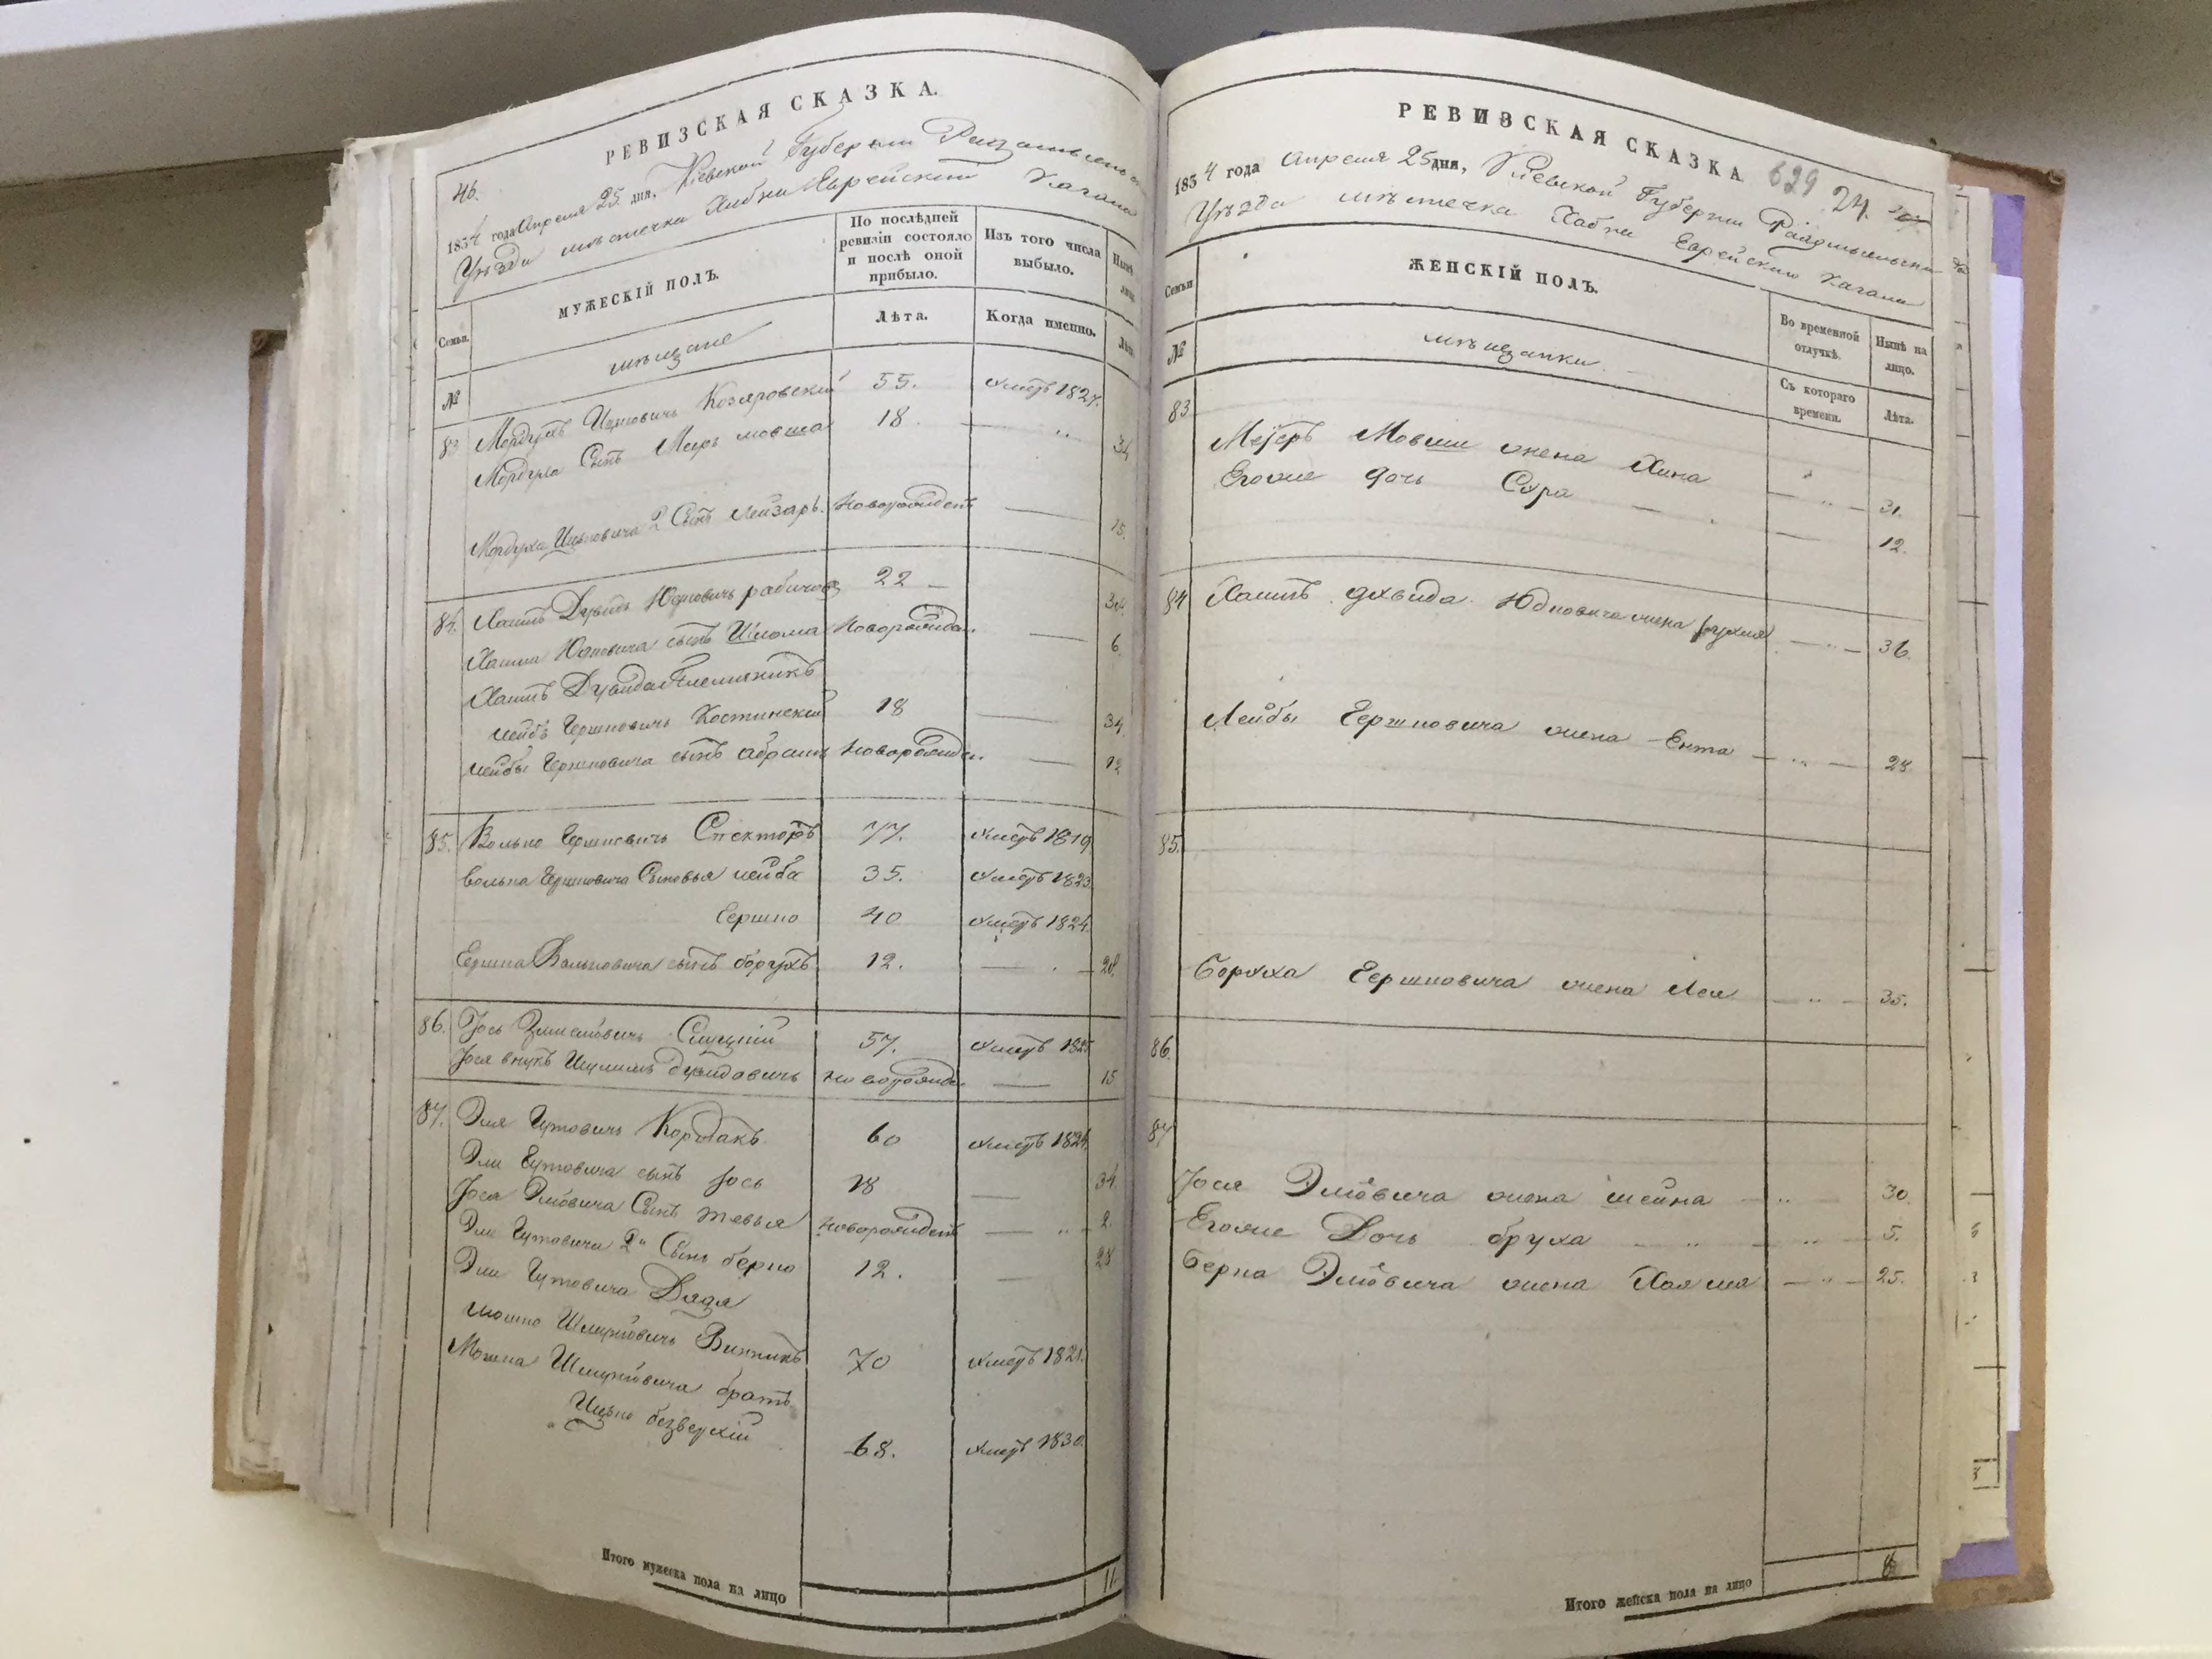 РЕВИЗСКАЯ СКАЗКА.
46.
1834 года Апреля 25 дня, Кіевской Губерніи Радомысльскаго
Уѣзда мѣстечка Хабни Еврейскій Кагалъ
Семьи.
МУЖЕСКІЙ ПОЛЪ.
По послѣдней ревизіи состояло и послѣ оной прибыло.
Изъ того числа выбыло.
Нынѣ
№
мѣщане
Лѣта.
Когда именно.
Лѣта
83 Мордухъ Ицковичъ Козяровскій 55. умеръ 1827.
Мордуха Сынъ Меръ мовша 18 — „ 34
Мордуха Ицковича 2 Сынъ Лейзаръ. новорожденъ — 15.
84. Хаимъ Дувидъ Юдковичъ рабичовъ 22 —
Хаима Юдковича сынъ Шлома новорожден. — 6.
Хаимъ Дувида Племянникъ
лейбъ Гершковичъ Костинскій 18 — 34
лейбы Гершковича сынъ абрамъ новорожден. — 12
85. Волько Гершковичъ Спекторъ 77. умеръ 1819
Волька Гершковича Сыновья лейба 35. умеръ 1823.
Гершко 40 умеръ 1824.
Гершка Вольковича сынъ борухъ 12. — 28.
86. Іось Слуцкій 57. умеръ 1825
Іося внукъ Дувидовичъ новорожден. — 15
87. Эля Гутовичъ Кордакъ 60 умеръ 1824
Эли Гутовича сынъ Іось 18 — 34
Іося Эліовича Сынъ тевья новорожденъ — „ 2.
Эли Гутовича 2й Сынъ берко 12. — 28
Эли Гутовича Дядя
мошко Шмуйловичъ Винникъ 70 умеръ 1821.
Мошка Шмуйловича братъ
Ицько безверхій 68. умеръ 1830.
Итого мужеска пола на лицо 11.
РЕВИЗСКАЯ СКАЗКА. 629 24.
1834 года Апреля 25 дня, Кіевской Губерніи Радомысльскаго
Уѣзда мѣстечка Хабни Еврейскаго Кагала
Семьи
ЖЕНСКІЙ ПОЛЪ.
Во временной отлучкѣ.
Нынѣ на лицо.
№
мѣщанки.
Съ котораго времени.
Лѣта.
83
Меръ Мовши жена Хина — „ — 31.
Егоже дочь Сура — 12.
84 Хаимъ дувида Юдковича жена — „ — 36.
Лейбы Гершковича жена Ента — „ — 28.
85.
Боруха Гершковича жена Лея — „ — 35.
86.
87
Іося Эліовича жена шейна — „ — 30
Егоже Дочь бруха — „ — 5.
Берка Эліовича жена — „ — 25.
Итого женска пола на лицо 8